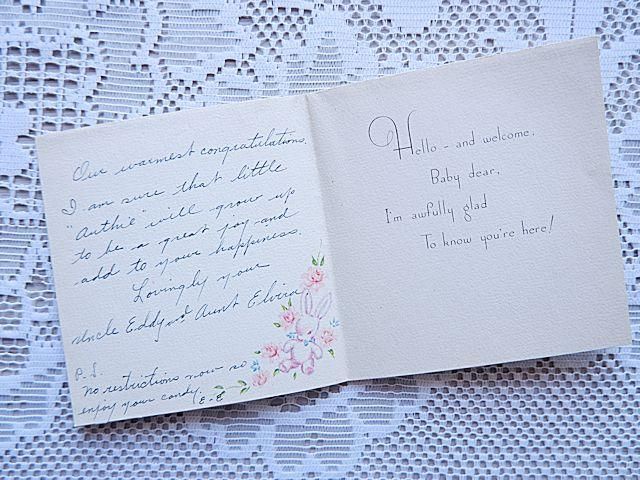 Our warmest congratulations.
I am sure that little
"Authie" will grow up
to be a great joy and
add to your happiness.
Lovingly your
Uncle Eddy and Aunt Elvira.
P.S.
no restrictions now so
enjoy your candy. E-E
Hello - and welcome,
Baby dear,
I'm awfully glad
To know you're here!